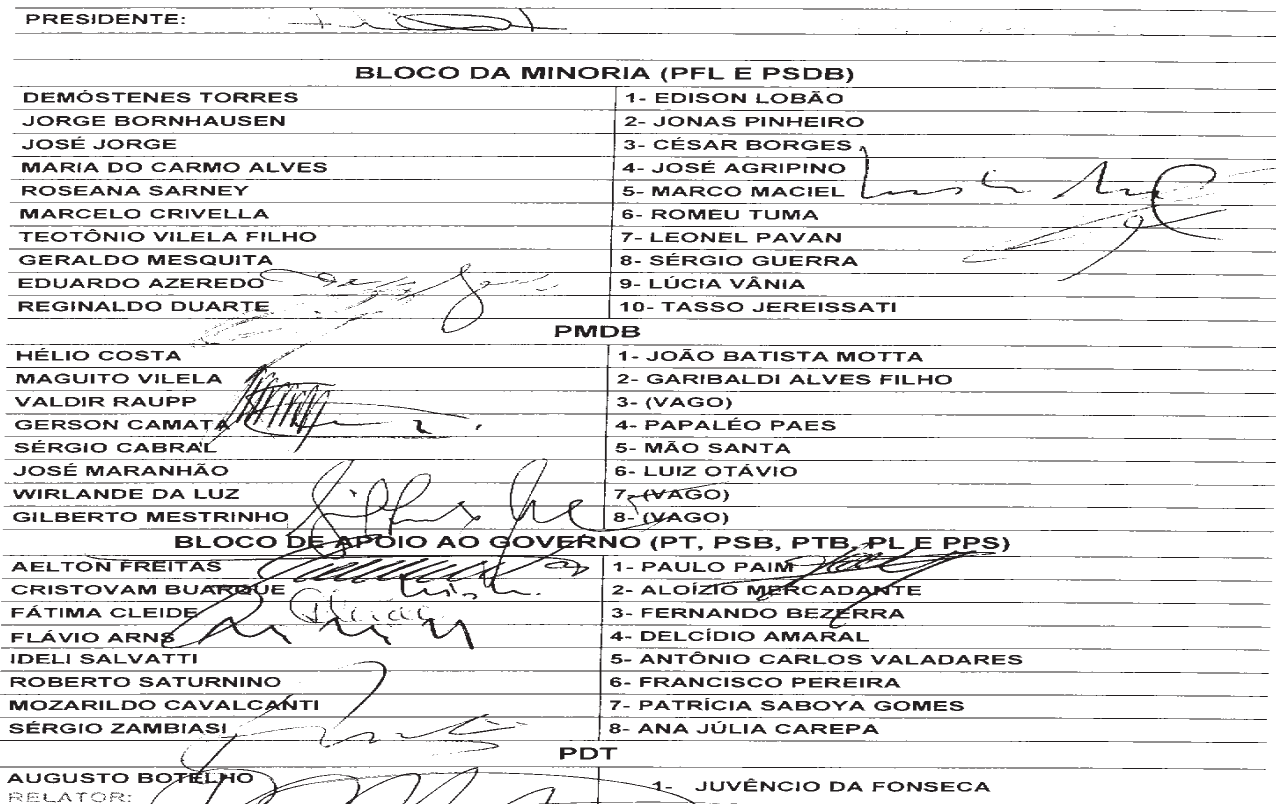 PRESIDENTE:
BLOCO DA MINORIA (PFL E PSDB)
DEMÓSTENES TORRES 1- EDISON LOBÃO
JORGE BORNHAUSEN 2- JONAS PINHEIRO
JOSÉ JORGE 3- CÉSAR BORGES
MARIA DO CARMO ALVES 4- JOSÉ AGRIPINO
ROSEANA SARNEY 5- MARCO MACIEL
MARCELO CRIVELLA 6- ROMEU TUMA
TEOTÔNIO VILELA FILHO 7- LEONEL PAVAN
GERALDO MESQUITA 8- SÉRGIO GUERRA
EDUARDO AZEREDO 9- LÚCIA VÂNIA
REGINALDO DUARTE 10- TASSO JEREISSATI
PMDB
HÉLIO COSTA 1- JOÃO BATISTA MOTTA
MAGUITO VILELA 2- GARIBALDI ALVES FILHO
VALDIR RAUPP 3- (VAGO)
GERSON CAMATA 4- PAPALÉO PAES
SÉRGIO CABRAL 5- MÃO SANTA
JOSÉ MARANHÃO 6- LUIZ OTÁVIO
WIRLANDE DA LUZ 7- (VAGO)
GILBERTO MESTRINHO 8- (VAGO)
BLOCO DE APOIO AO GOVERNO (PT, PSB, PTB, PL E PPS)
AELTON FREITAS 1- PAULO PAIM
CRISTOVAM BUARQUE 2- ALOÍZIO MERCADANTE
FÁTIMA CLEIDE 3- FERNANDO BEZERRA
FLÁVIO ARNS 4- DELCÍDIO AMARAL
IDELI SALVATTI 5- ANTÔNIO CARLOS VALADARES
ROBERTO SATURNINO 6- FRANCISCO PEREIRA
MOZARILDO CAVALCANTI 7- PATRÍCIA SABOYA GOMES
SÉRGIO ZAMBIASI 8- ANA JÚLIA CAREPA
PDT
AUGUSTO BOTELHO 1- JUVÊNCIO DA FONSECA
RELATOR: